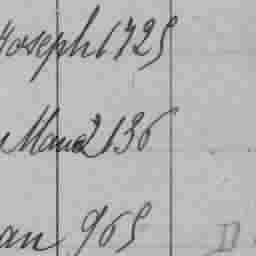 Joseph 1725
Maria 2136
an 965
II